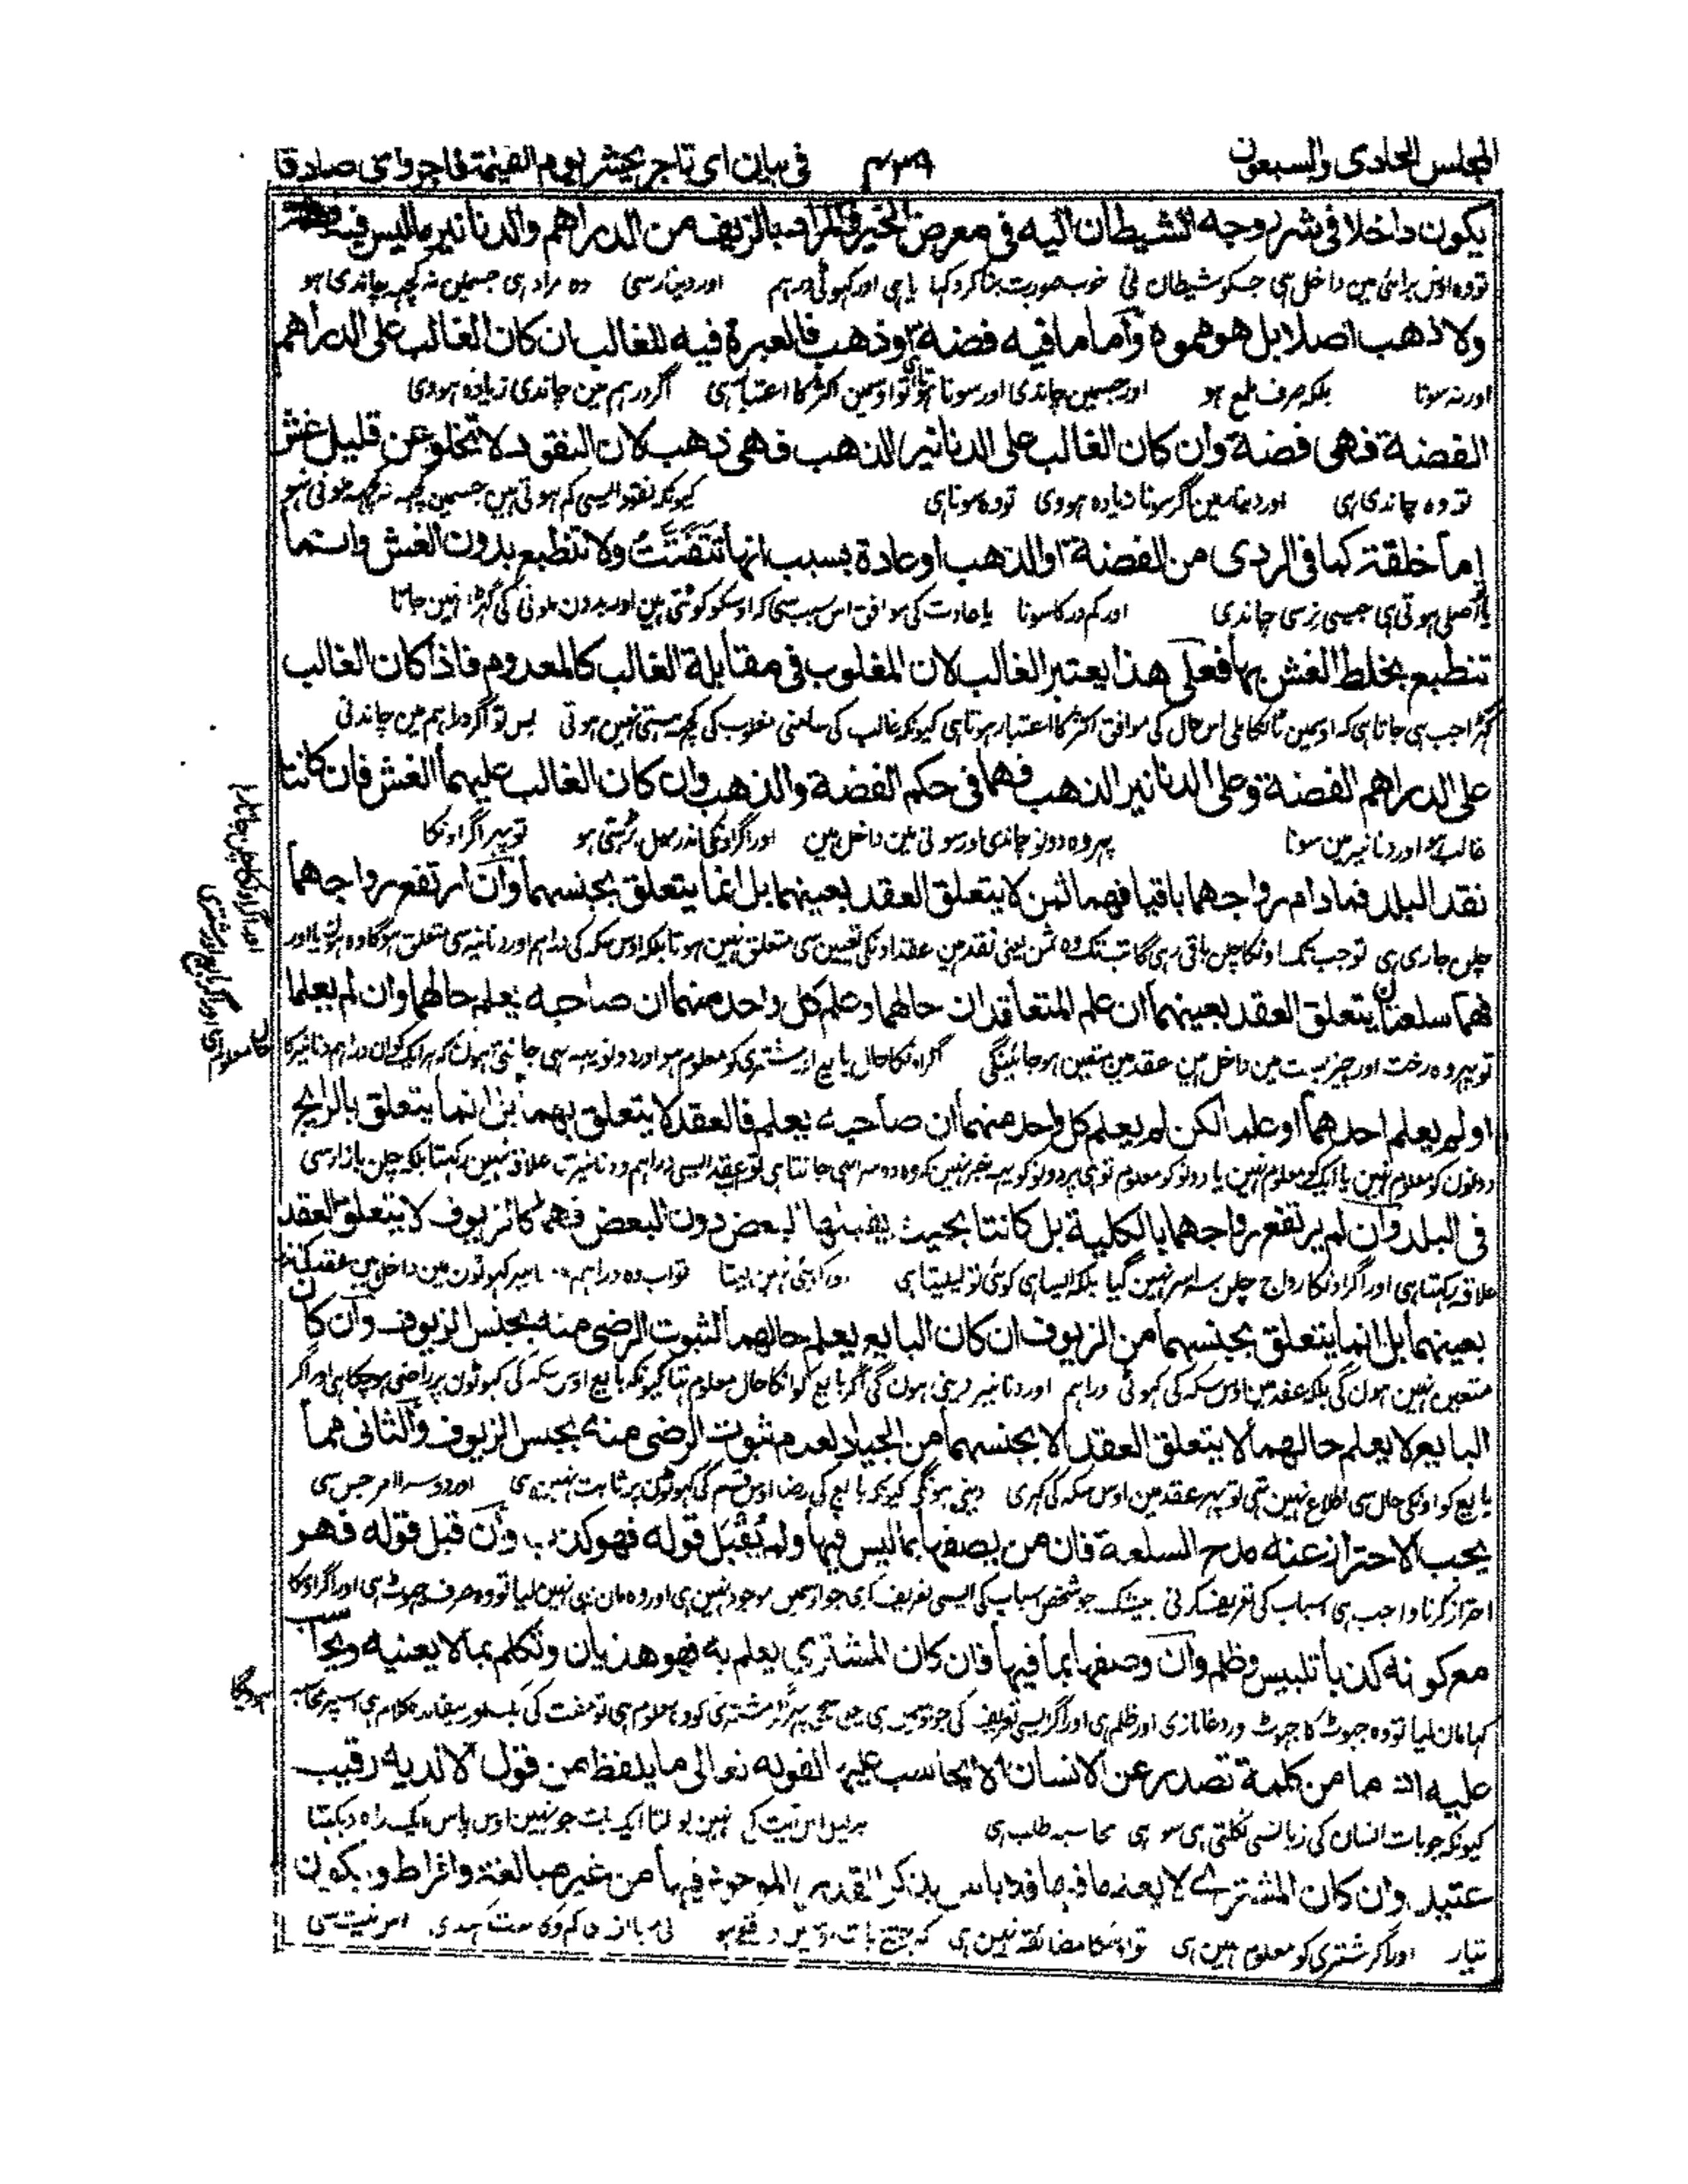 المجلس الحادی والسبعون ۴۳۹ فی بیان ای تاجر یحشر یوم القیمة فاجرا وای صادقا
یکون داخلا فی شر روجه الشیطان الیه فی معرض الخیر والمراد بالزیف من الدراهم والدنانیر ما لیس فیه
تو وہ اوس برائی مین داخل ہی جسکو شیطان نی خوب صورت بنا کر دکہا یا ہی اور کہوٹی درہم اور دینار سی وہ مراد ہی جسمین نہ کچہہ چاندی ہو
ولا ذهب اصلا بل هو مموه وآما ما فیه فضة وذهب فالعبرة فیه للغالب ان کان الغالب علی الدراهم
اور نہ سونا بلکہ صرف ملمع ہو اور جسمین چاندی اور سونا ہو تو اوسمین اکثر کا اعتبار ہی اگر درہم مین چاندی زیادہ ہووی
الفضة فهی فضة وان کان الغالب علی الدنانیر الذهب فهی ذهب لان النقود لا تخلو عن قلیل غش
تو وہ چاندی ہی اور دینار مین اگر سونا زیادہ ہووی تو وہ سونا ہی کیونکہ نقود ایسی کم ہوتی ہین جسمین کچہہ نہ کچہہ ملونی نہو
إما خلقة کما فی الردی من الفضة او الذهب او عادة بسبب انها تتفتت ولا تنطبع بدون الغش وانما
یا اصلی ہوتی ہی جیسی بری چاندی اور کم در کا سونا یا عادت کی موافق اس سبب سی کہ اوسکو کوٹتی ہین اور بدون ملونی کی گہڑا نہین جاتا
تنطبع بخلط الغش بها فعلی هذا یعتبر الغالب لان المغلوب فی مقابلة الغالب کالمعدوم فاذا کان الغالب
گہڑا جب ہی جاتا ہی کہ اوسمین ٹانکا ملی اس حال کی موافق اکثر کا اعتبار ہوتا ہی کیونکہ غالب کی سامنی مغلوب کی کچہہ ہستی نہین ہوتی پس تو اگر دراہم مین چاندنی
علی الدراهم الفضة وعلی الدنانیر الذهب فهما فی حکم الفضة والذهب وان کان الغالب علیهما الغش فان کانتا
غالب ہو اور دنانیر مین سونا پہر وہ دونو چاندی اور سونی مین داخل ہین اور اگر اونکی اندر میل بڑہتی ہو تو پہر اگر اونکا
نقد البلد فما دام رواجهما باقیا فهما ثمن لا یتعلق العقد بعینهما بل انما یتعلق بجنسهما وان ارتفع رواجهما
چلن جاری ہی تو جب تک اونکا چلن باقی رہی گا تب تک وہ ثمن یعنی نقد ہین عقد اونکی تعیین سی متعلق نہین ہوتا بلکہ اوس سکہ کی دراہم اور دنانیر سی متعلق ہوگا وہ ہون یا اور
فهما سلعتان یتعلق العقد بعینهما ان علم المتعاقدان حالهما وعلم کل واحد منهما ان صاحبه یعلم حالهما وان لم یعلما
تو پہر وہ رخت اور چیز بست مین داخل ہین عقد مین متعین ہو جائینگی اگر اونکا حال بایع اور مشتری کو معلوم ہو اور دونو یہہ بہی جانتی ہون کہ ہر ایک کو ان دراہم دنانیر کا
حال معلوم ہی اور اگر بایع اور مشتری
اور اگر اونکا چلن جاتا رہا
او لم یعلم احدهما او علما لکن لم یعلم کل واحد منهما ان صاحبه یعلم فالعقد لا یتعلق بهما بل انما یتعلق بالرایج
دونون کو معلوم نہین یا ایک کو معلوم نہین یا دونو کو معلوم تو ہی پر دونو کو یہہ خبر نہین کہ وہ دوسرا بہی جانتا ہی تو عقد ایسی دراہم و دنانیر سی علاقہ نہین رکہتا بلکہ چلن بازار سی
فی البلد وان لم یرتفع رواجهما بالکلیة بل کانتا بحیث یقبلها البعض دون البعض فهما کالزیوف لا یتعلق العقد
علاقہ رکہتا ہی اور اگر اونکا رواج چلن سراسر نہین گیا بلکہ ایسا ہی کوئی تو لیلیتا ہی اور کوئی نہین لیتا تو اب وہ دراہم کہوٹون مین داخل ہین عقد کی
بعینهما بل انما یتعلق بجنسهما من الزیوف ان کان البایع یعلم حالهما لثبوت الرضی منه بجنس الزیوف وان کان
متعین نہین ہون گی بلکہ عقد مین اوس سکہ کی کہوٹی دراہم اور دنانیر دینی ہون گی اگر بایع کو انکا حال معلوم تہا کیونکہ بایع اوس سکہ کی کہوٹون پر راضی ہو چکا ہی اور اگر
البایع لا یعلم حالهما لا یتعلق العقد الا بجنسهما من الجیاد لعدم ثبوت الرضی منه بجنس الزیوف والثانی مما
بایع کو اونکی حال سی اطلاع نہین تہی تو پہر عقد مین اوس سکہ کی کہری دینی ہونگی کیونکہ بایع کی رضا اوس قسم کی کہوٹون پر ثابت نہین ہی اور دوسرا امر جس سی
یجب الاحتراز عنه مدح السلعة فان من یصفها بما لیس فیها ولم یقبل قوله فهو کذب وان قبل قوله فهو
احتراز کرنا واجب ہی اسباب کی تعریف کرنی بیشک جو شخص اسباب کی ایسی تعریف کری جو اوسمین موجود نہین ہی اور وہ مان بہی نہین لیا تو وہ صرف جہوٹ ہی اور اگر اوسکا
مع کونه کذبا تلبیس وظلم وان وصفها بما فیها فان کان المشتری یعلم به فهو هذیان وتکلم بما لا یعنیه ویحاسب
کہا مان لیا تو وہ جہوٹ کا جہوٹ اور دغابازی اور ظلم ہی اور اگر ایسی تعریف کی جو اوسمین ہی پہر اگر مشتری کو وہ معلوم ہی تو مفت کی بک اور بیفائدہ کلام ہی اسپر محاسبہ
ہووگا
علیه اذ ما من کلمة تصدر عن الانسان الا یحاسب علیها لقوله تعالی ما یلفظ من قول الا لدیه رقیب
کیونکہ جو بات انسان کی زبانسی نکلتی ہی سو ہی محاسبہ طلب ہی نہین بولتا ایک بات جو نہین اوس پاس ایک راہ دیکہتا
عتید وان کان المشتری لا یعلم ما فیها فلا باس بذکر القدر الموجود فیها من غیر مبالغة وافراط ویکون
تیار اور اگر مشتری کو معلوم نہین ہی تو اسکا مضائقہ نہین ہی کہ جتنی بات اسنیت سی